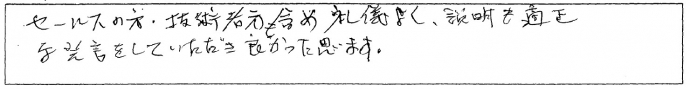 セールスの方・技術者方も含め礼儀よく、説明も適正
な発言をしていただき良かった思います。